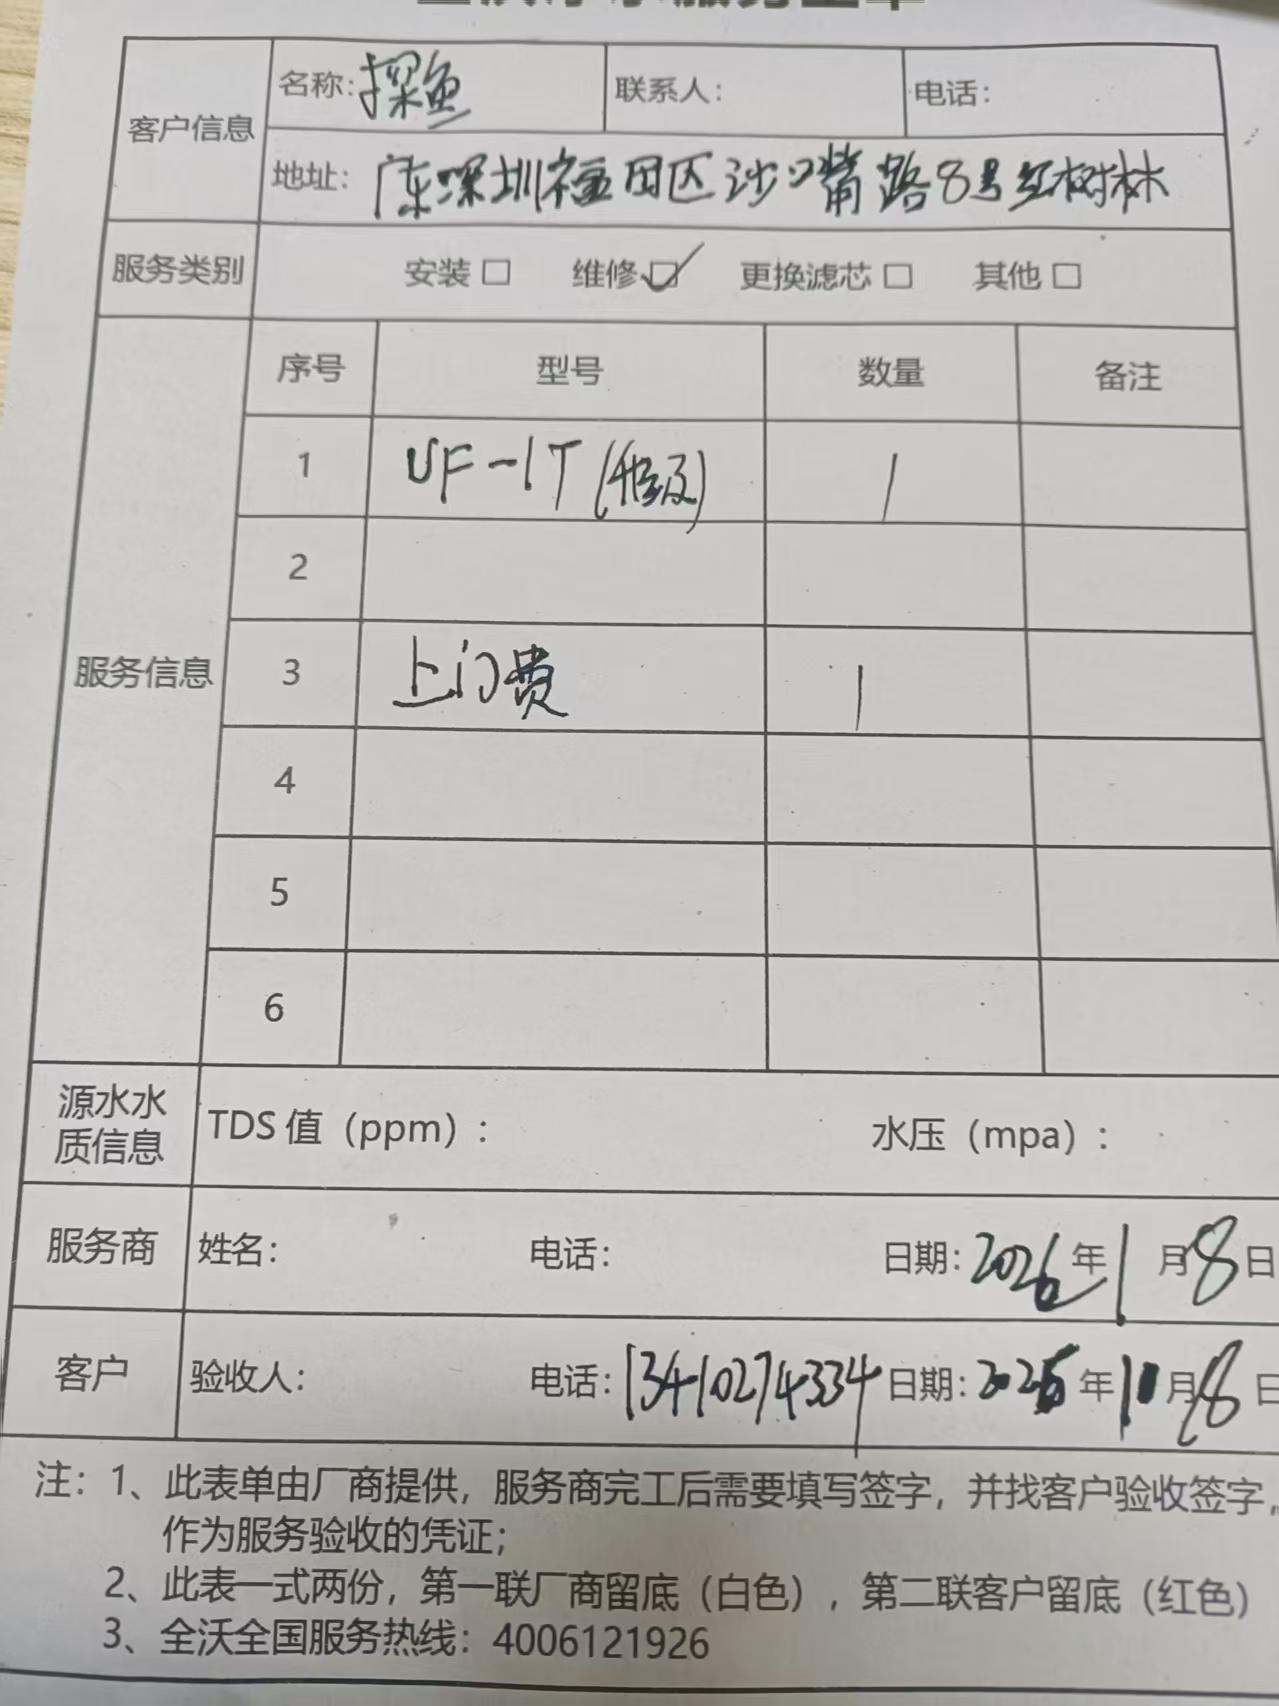 客户信息 名称：探鱼 联系人： 电话：
地址：广东深圳福田区沙口嘴路8号红树林
服务类别 安装□ 维修☑ 更换滤芯□ 其他□
服务信息
序号 型号 数量 备注
1 UF-1T 1
2
3 上门费 1
4
5
6
源水水质信息 TDS 值（ppm）： 水压（mpa）：
服务商 姓名： 电话： 日期：2026年1月8日
客户 验收人： 电话：13410274334 日期：2026年1月8日
注：1、此表单由厂商提供，服务商完工后需要填写签字，并找客户验收签字，
作为服务验收的凭证；
2、此表一式两份，第一联厂商留底（白色），第二联客户留底（红色）
3、全沃全国服务热线：4006121926